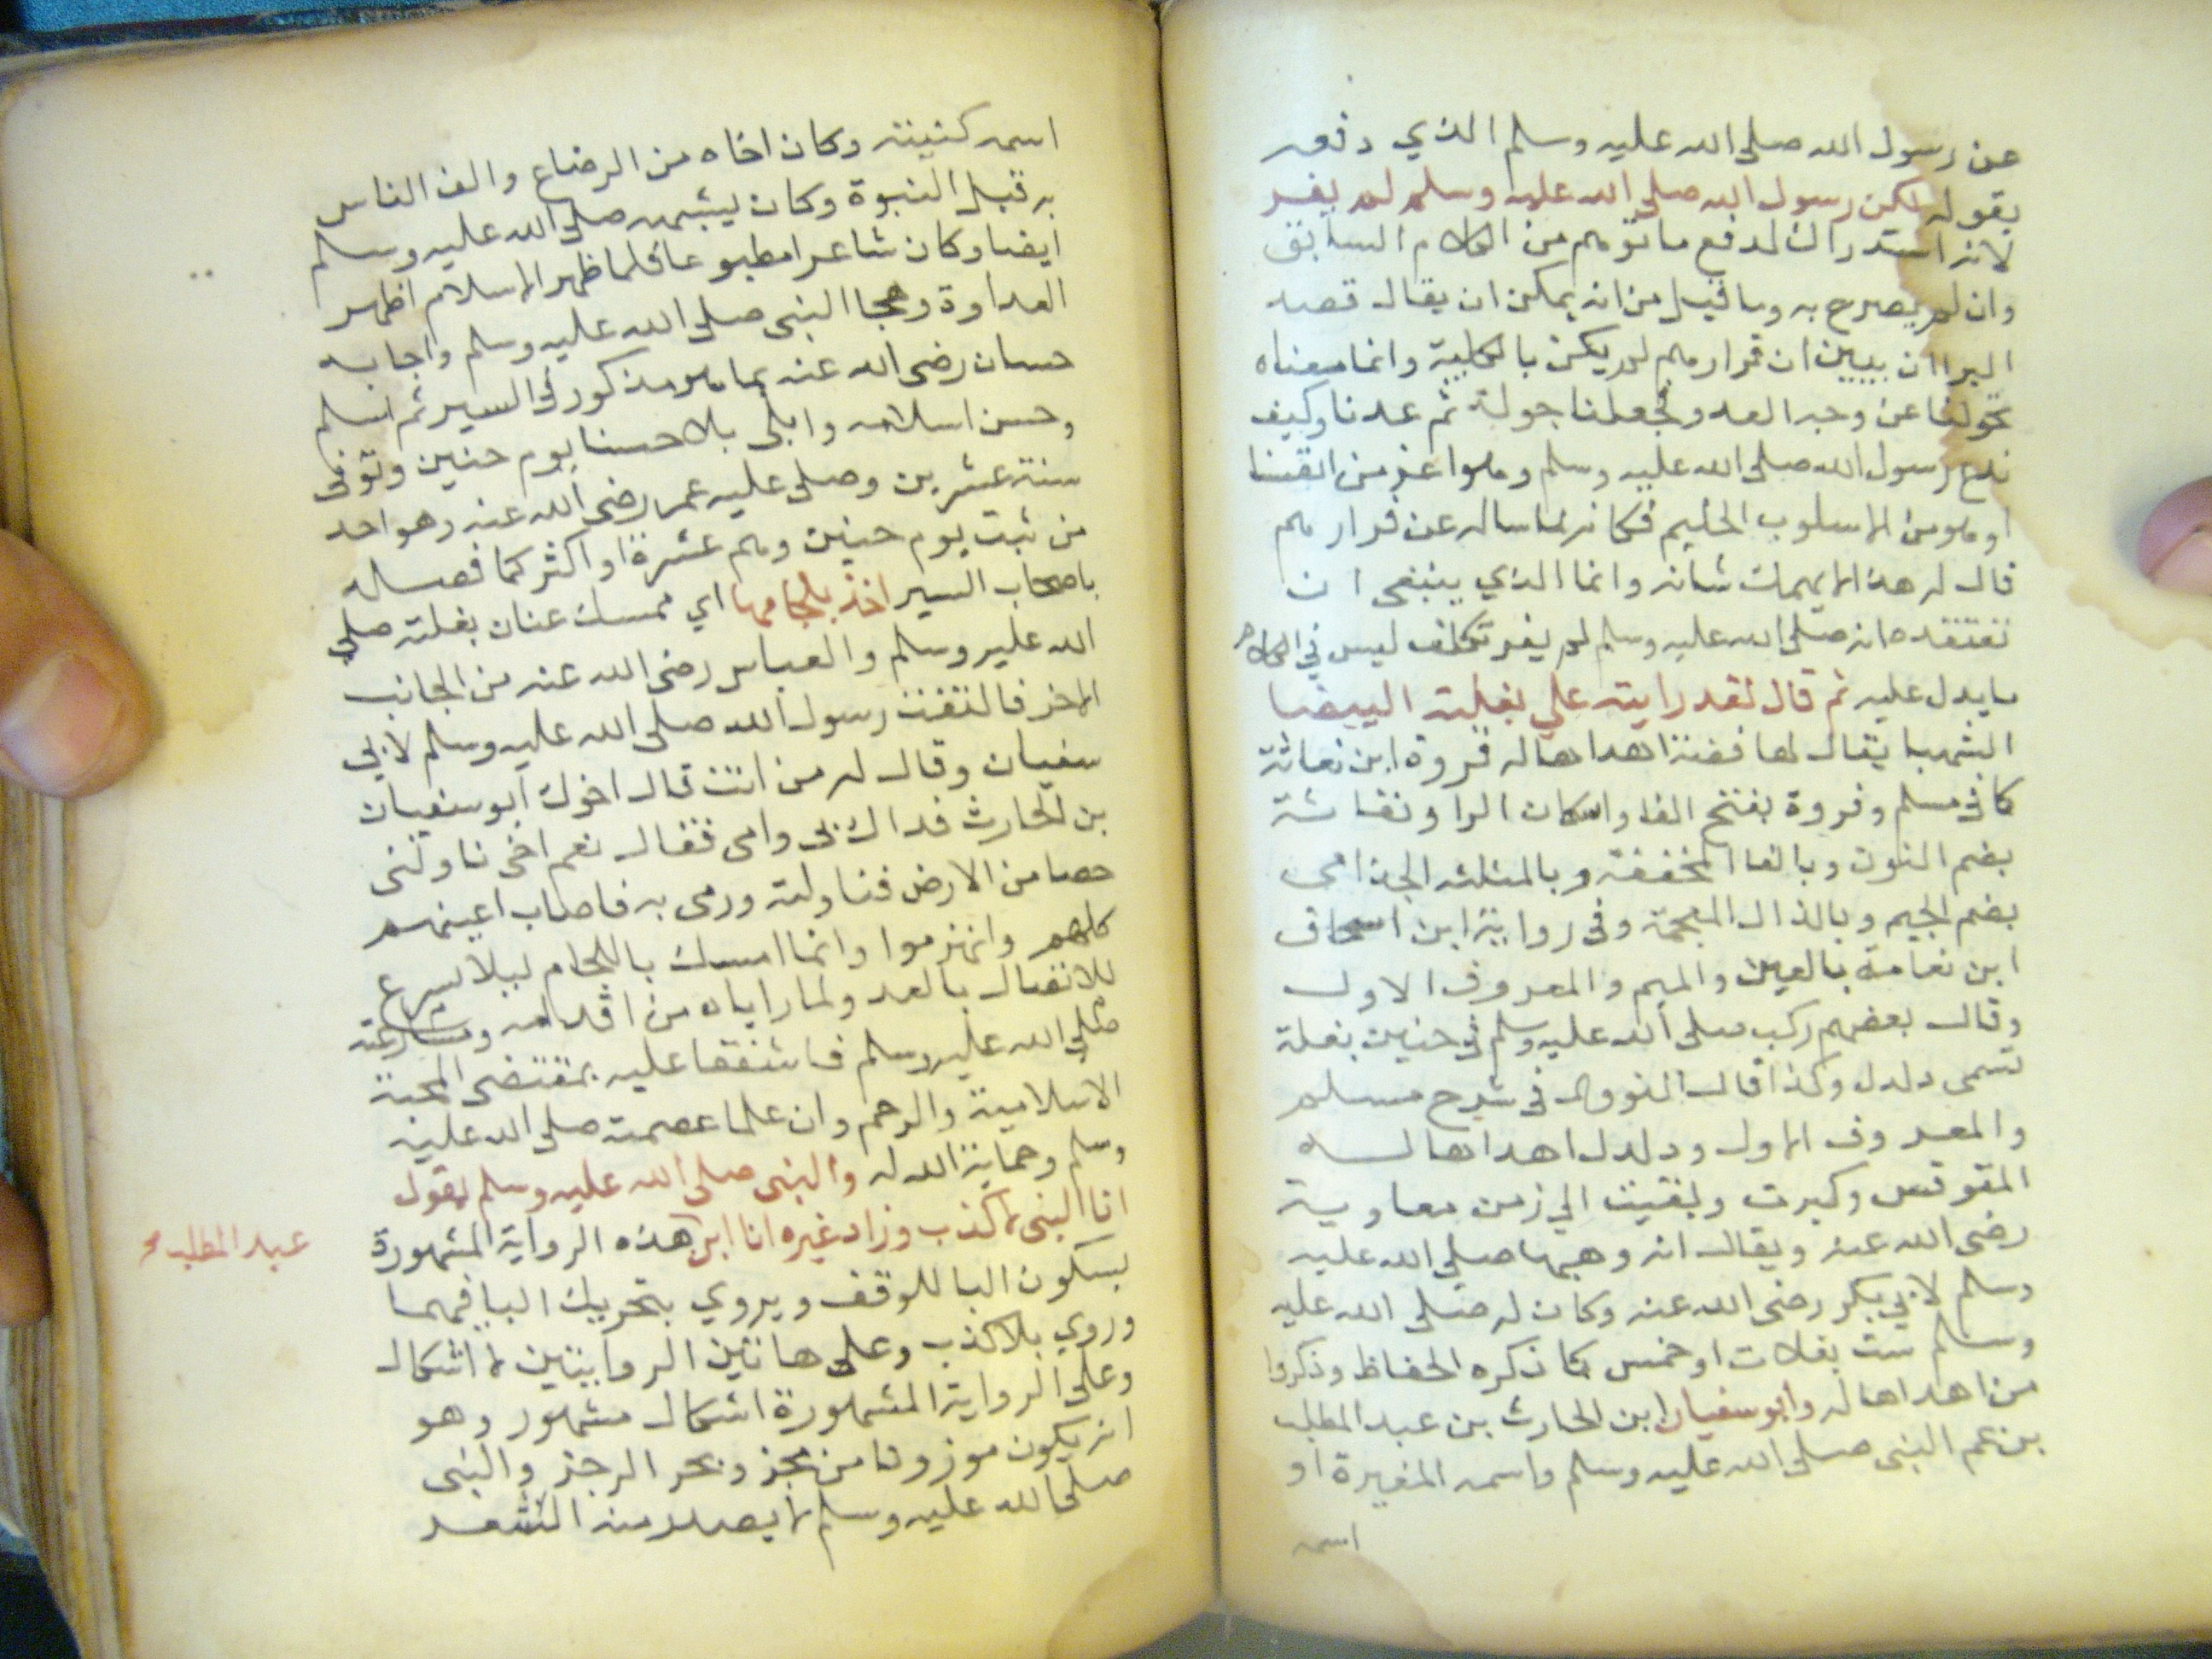 عن رسول الله صلى الله عليه وسلم الذي دفعه
بقوله لكن رسول الله صلى الله عليه وسلم لم يفر
لانه استدراك لدفع ما توهم من الكلام السابق
وان لم يصرح به وما قيل من انه يمكن ان يقال قصد
البرا ان يبين ان فرارهم لم يكن بالكلية وانما معناه
تحولنا عن وجه العدو فجعلنا جولة ثم عدنا وكيف
ندع رسول الله صلى الله عليه وسلم وهو اعز من انفسنا
او هو من الاسلوب الحكيم فكانه لما ساله عن فرارهم
قال له هذا لا يهمك شانه وانما الذي ينبغي ان
تفتقده انه صلى الله عليه وسلم لم يفر تكلف ليس في الكلام
ما يدل عليه ثم قال لقد رايته على بغلته البيضا
الشهبا يقال لها فضة اهداها له فروة ابن نفاثة
كما في مسلم وفروة بفتح الفا واسكان الرا ونفاثة
بضم النون وبالفا المخففة وبالمثلثه الجذامي
بضم الجيم وبالذال المعجمة وفي رواية ابن اسحاق
ابن نعامة بالعين والميم والمعروف الاول
وقال بعضهم ركب صلى الله عليه وسلم في حنين بغلة
تسمى دلدل وكذا قال النووي في شرح مسلم
والمعروف الاول ودلدل اهداها له
المقوقس وكبرت وبقيت الي زمن معاوية
رضى الله عنه ويقال انه وهبها صلى الله عليه
وسلم لابي بكر رضى الله عنه وكان له صلى الله عليه
وسلم ست بغلات او خمس كما ذكره الحفاظ وذكروا
من اهداها له وابو سفيان ابن الحارث بن عبد المطلب
بن عم النبى صلى الله عليه وسلم واسمه المغيرة او
اسمه
اسمه كنيته وكان اخاه من الرضاع والف الناس
به قبل النبوة وكان يشبهه صلى الله عليه وسلم
ايضا وكان شاعرا مطبوعا فلما ظهر الاسلام اظهر
العداوة وهجا النبى صلى الله عليه وسلم واجابه
حسان رضى الله عنه بما هو مذكور في السير ثم اسلم
وحسن اسلامه وابلى بلا حسنا يوم حنين وتوفى
سنة عشرين وصلى عليه عمر رضى الله عنه وهو احد
من ثبت يوم حنين وهم عشرة او اكثر كما فصله
باصحاب السير اخذ بلجامها اي ممسك عنان بغلته صلى
الله عليه وسلم والعباس رضى الله عنه من الجانب
الاخر فالتفت رسول الله صلى الله عليه وسلم لابي
سفيان وقال له من انت قال اخوك ابو سفيان
بن الحارث فداك بي وامى فقال نعم اخى ناولنى
حصا من الارض فناولته ورمى به فاصاب اعينهم
كلهم وانهزموا وانما امسك باللجام ليلا يسرع
للاتصال بالعدو لما راياه من اقدامه ومسارعته
صلى الله عليه وسلم فاشفقا عليه بمقتضى المحبة
الاسلامية والرحم وان علما عصمة صلى الله عليه
وسلم وحماية الله له والنبى صلى الله عليه وسلم يقول
انا النبى لا كذب وزاد غيره انا ابن هذه الرواية المشهورة
عبد المطلب
بسكون البا للوقف ويروي بتحريك البا فيهما
وروي بلا كذب وعلى هاتين الروايتين لا اشكال
وعلى الرواية المشهورة اشكال مشهور وهو
انه يكون موزونا من بحر الرجز والنبى
صلى الله عليه وسلم لا يصدر منه الشعر